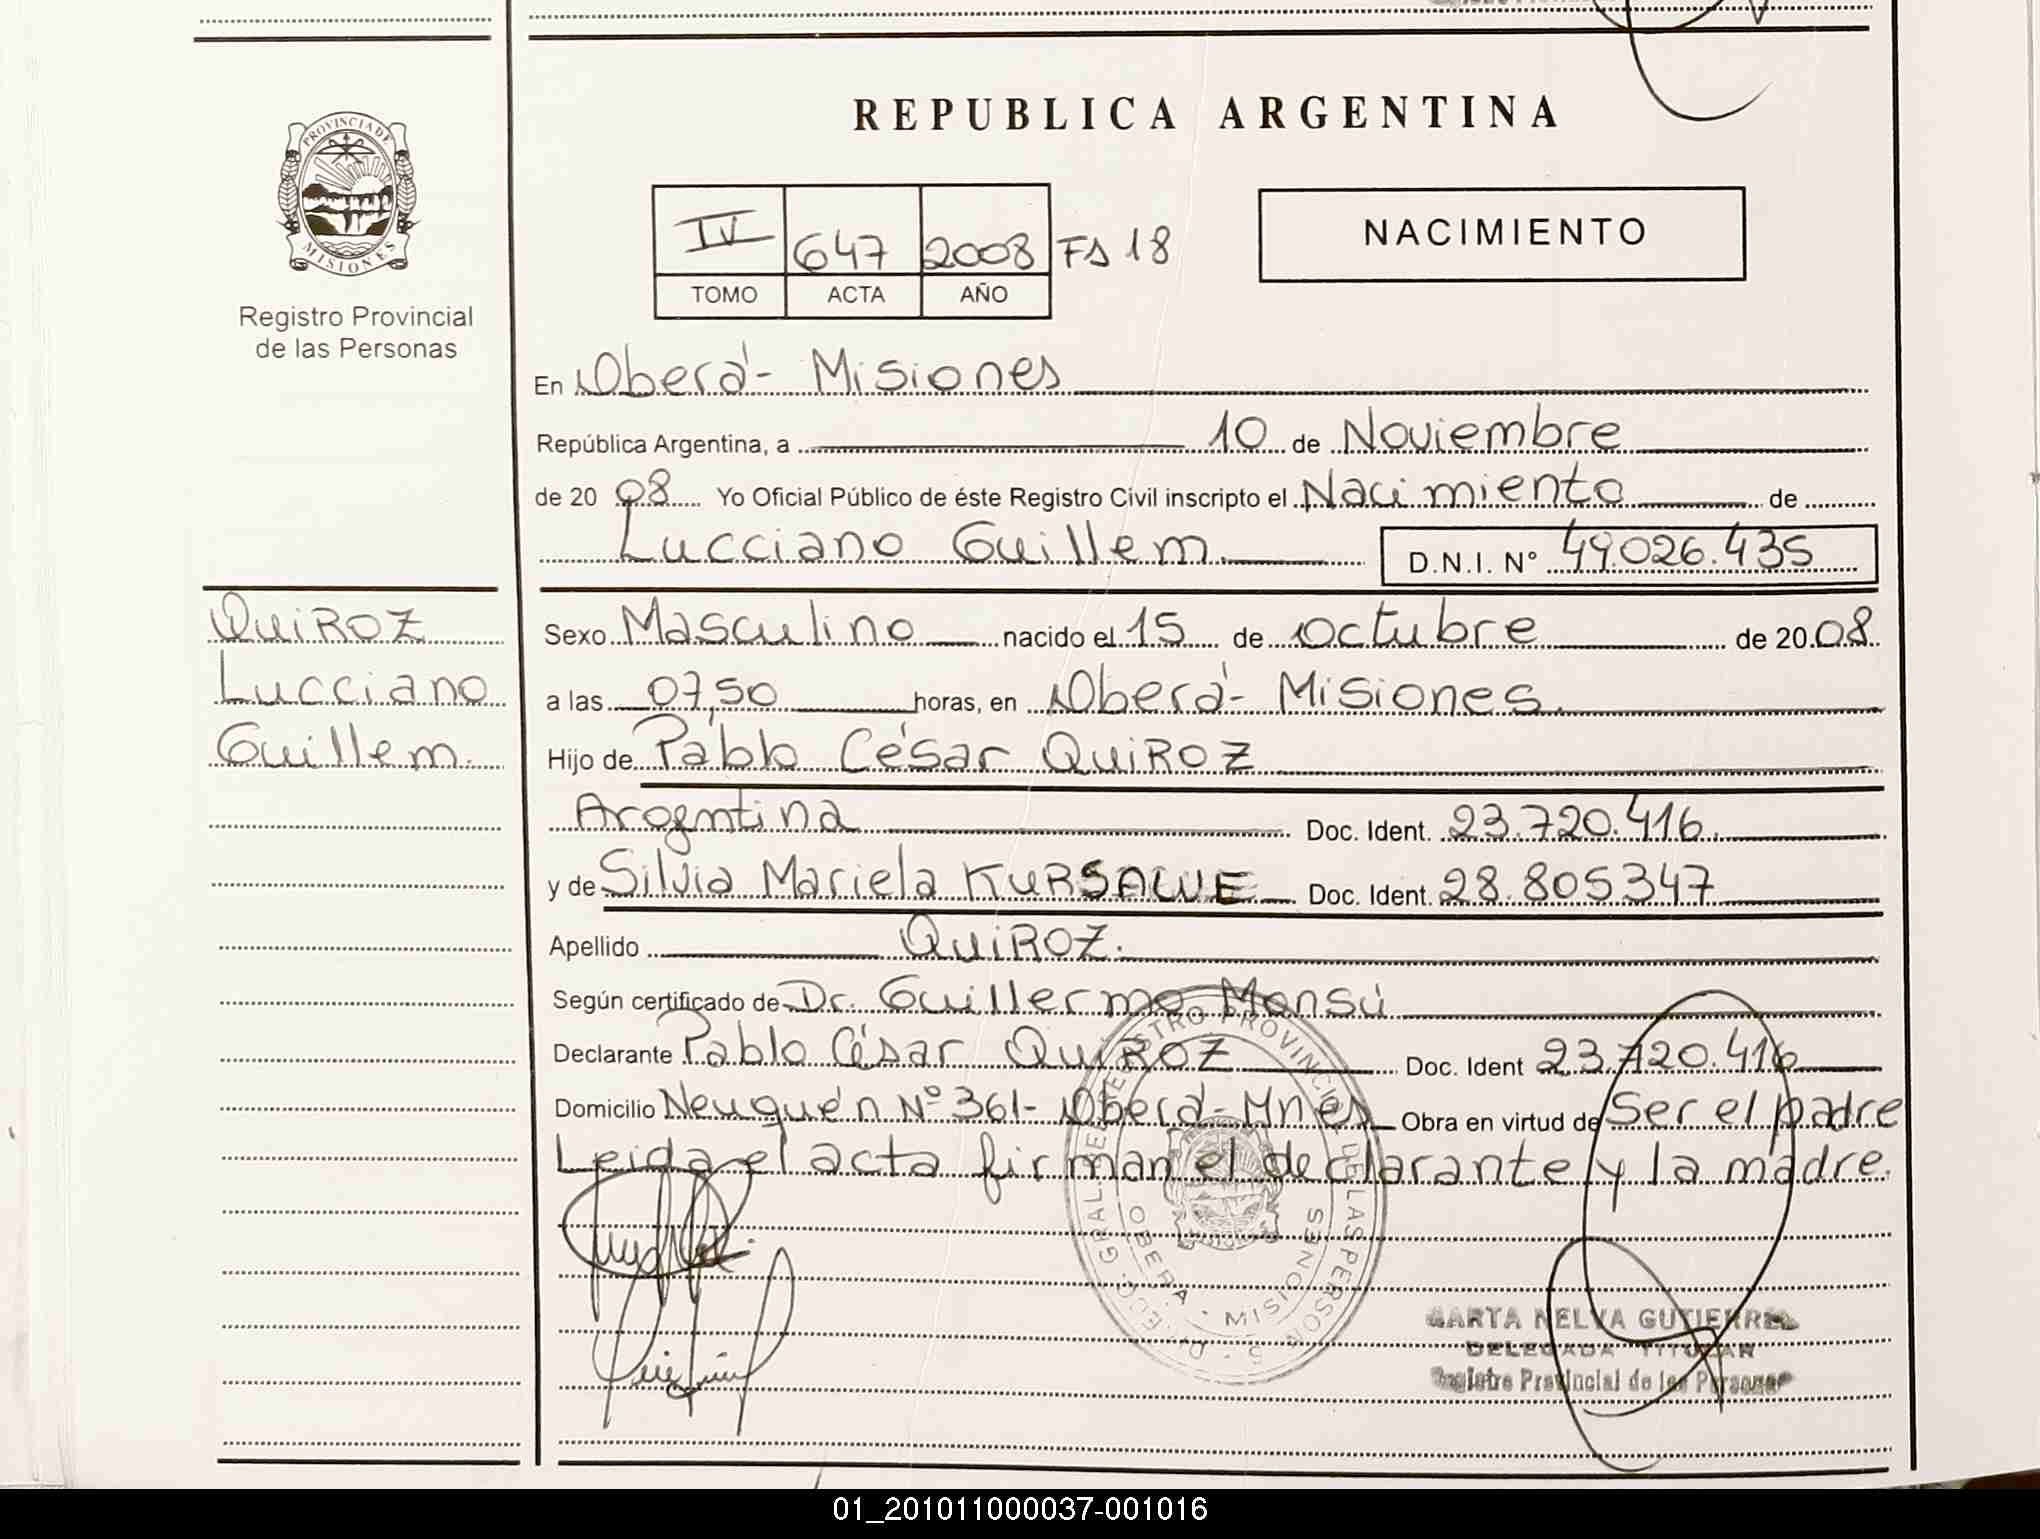 REPUBLICA ARGENTINA
PROVINCIA DE
MISIONES
Registro Provincial
de las Personas
IV 647 2008 Fs 18
TOMO ACTA AÑO
NACIMIENTO
En Oberá - Misiones
República Argentina, a 10 de Noviembre
de 20 08 Yo Oficial Público de éste Registro Civil inscripto el Nacimiento de
Lucciano Guillem. D.N.I. Nº 49.026.435
QUIROZ
Lucciano
Guillem.
Sexo Masculino nacido el 15 de octubre de 20 08
a las 07,50 horas, en Oberá - Misiones.
Hijo de Pablo César QUIROZ
Argentina Doc. Ident. 23.720.416.
y de Silvia Mariela KURSALUE Doc. Ident. 28.805347
Apellido QUIROZ.
Según certificado de Dr. Guillermo Monsú
Declarante Pablo César QUIROZ Doc. Ident 23.720.416
Domicilio Neuquén Nº 361 - Oberá - Mnes Obra en virtud de Ser el padre
Leida el acta firman el declarante y la madre.
REGISTRO PROVINCIAL DE LAS PERSONAS
OBERA - MISIONES
MARTA NELVA GUTIERREZ
DELEGADA TITULAR
Registro Provincial de las Personas
01_201011000037-001016